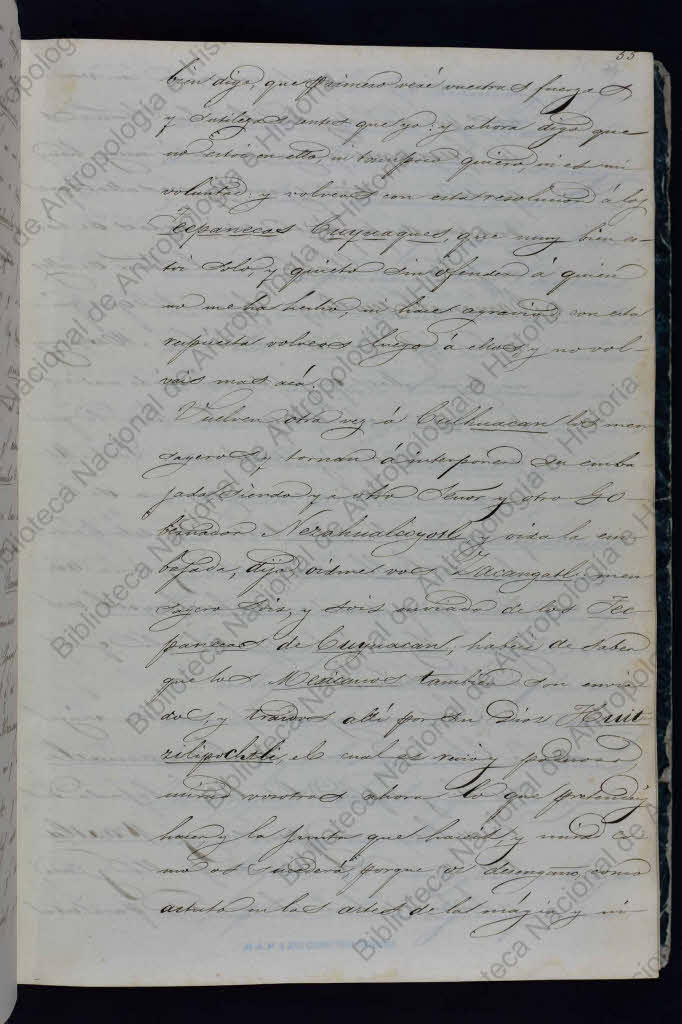 55
bien digo, que primero veré vuestras fuerzas,
y sutilezas antes que yo: y ahora digo que
no estoi en ello, ni tampoco quiero, ni es mi
voluntad: y volveos con esta resolucion á los
Tecpanecas Cuyuaques, que muy bien es-
toi solo, y quieto sin ofender á quien
no me ha hecho, ni hace agravio; con esta
respuesta volveos luego á ellos, y no vol-
vais mas acá.
Vuelven otra vez á Culhuacan los men-
sageros y tornan á interponer su emba-
jada siendo ya otro Señor y otro Go-
bernador Nezahualcoyotl y oida la em-
bajada, dijo, oidme vos Zacangatl, men-
sagero sois, y sois enviado de los Tec-
panecas de Cuyuacan, habeis de saber
que los Mexicanos tambien son envia-
dos, y traidos allí por su Dios Huit-
zilipochtli, el cual es recio y poderoso,
mirad vosotros ahora lo que pretendeis
hacer, y la junta que haceis, y mirad co-
mo os sucederá, porque os desengaño, como
astuto en las artes de la mágia, y ni-
Biblioteca Nacional de Antropología e Historia